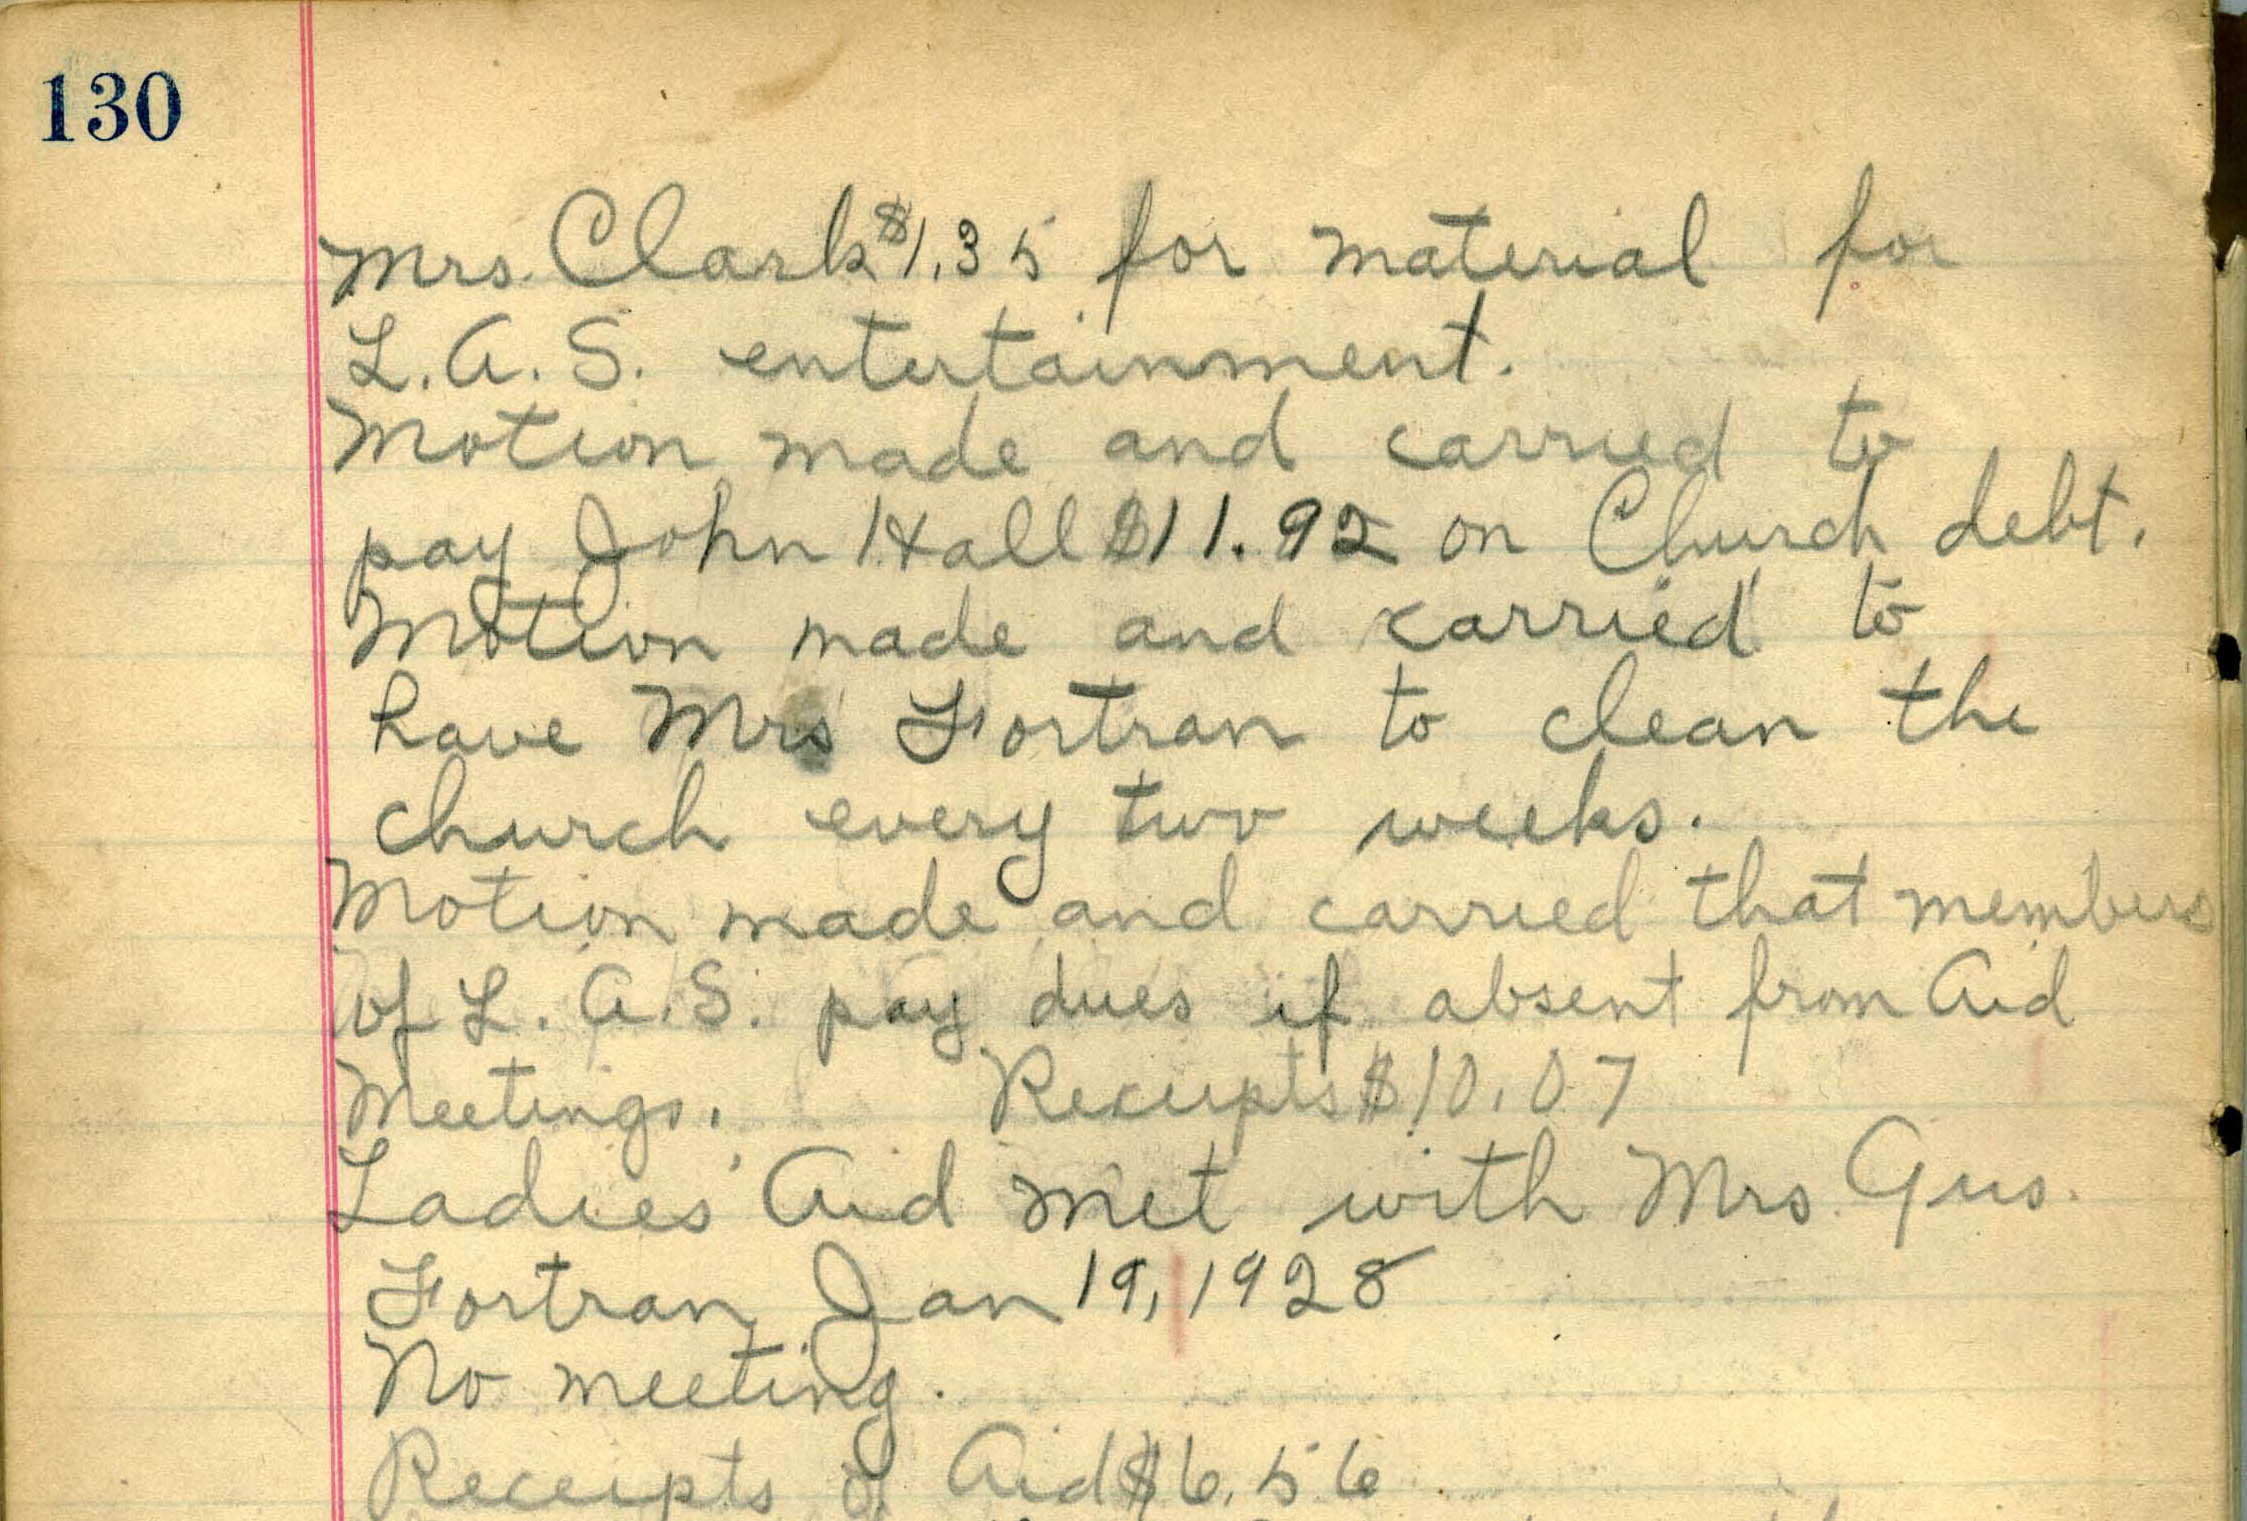 130
Mrs. Clark $1.35 for material for
L.A.S. entertainment.
Motion made and carried to
pay John Hall $11.92 on Church debt.
Motion made and carried to
have Mrs Fortran to clean the
church every two weeks.
Motion made and carried that members
of L.A.S. pay dues if absent from Aid
Meetings. Receipts $10.07
Ladies' Aid met with Mrs Gus
Fortran Jan 19, 1928
No meeting.
Receipts of Aid $6.56